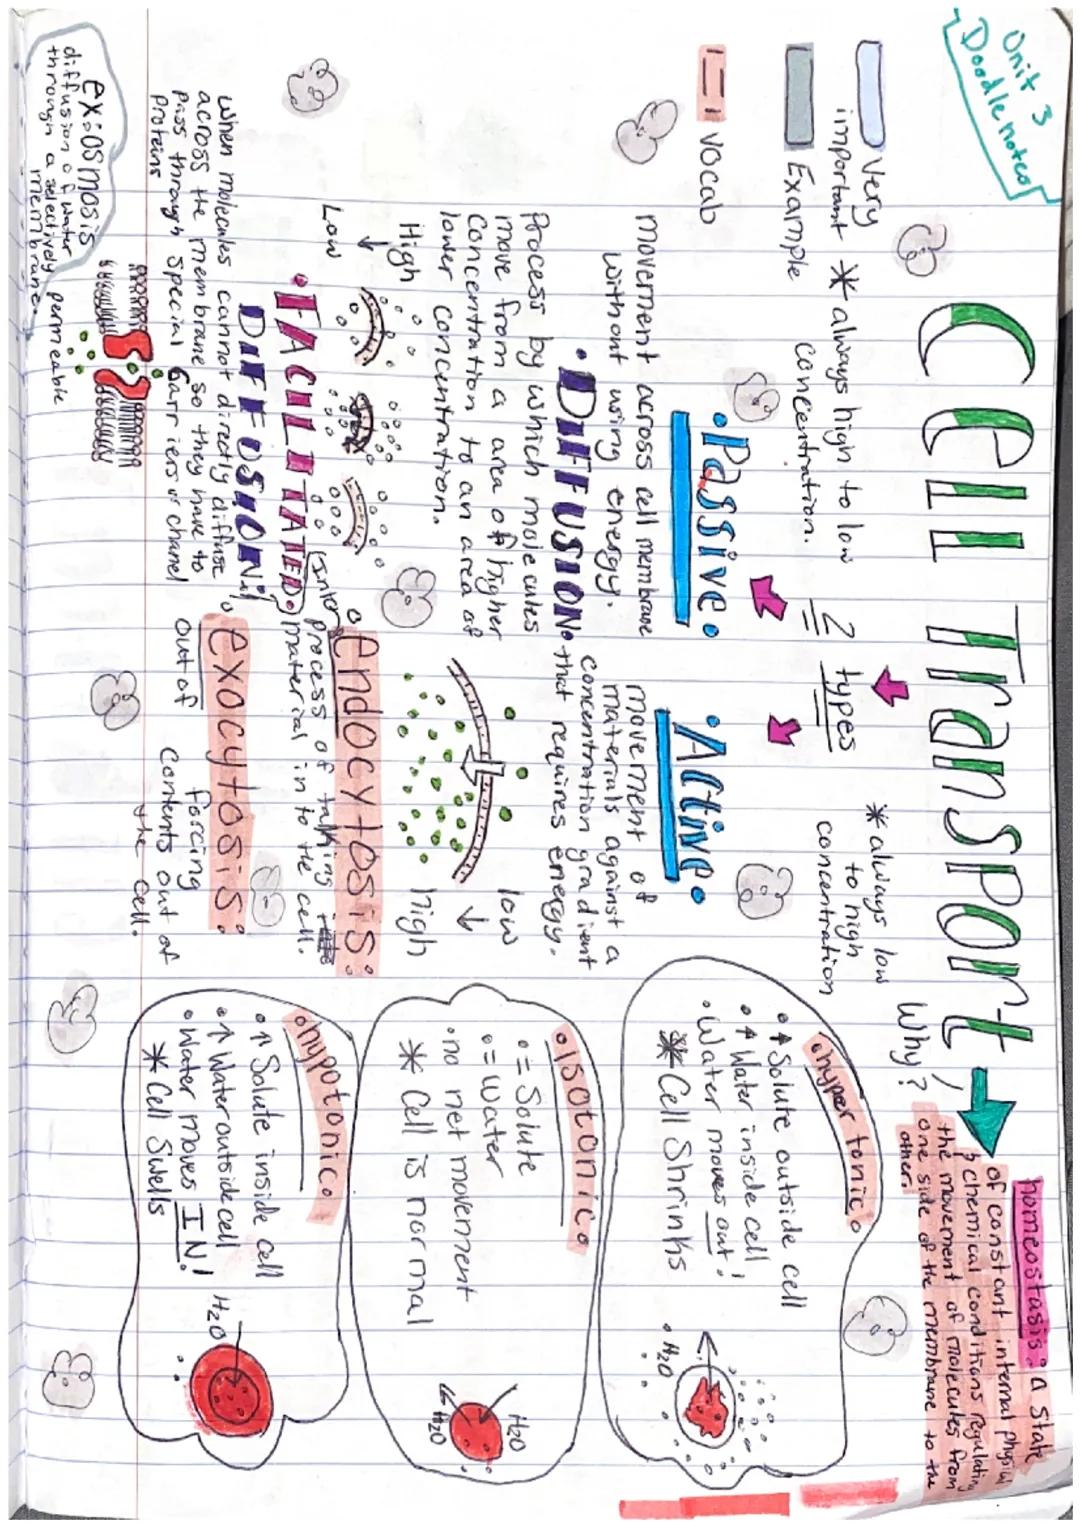 Unit 3
Doodle notes
Cell Transport
Very
important
Example
vocab
* always high to low
concentration.
2 types
* always low
to high
concentration
Why?
homeostasis: a state
of constant internal physical
& chemical conditions regulating
the movement of molecules from
one side of the membrane to the
other.
•Passive•
movement across cell membrane
without using energy.
•DIFFUSION•
Process by which molecules
move from a area of higher
concentration to an area of
lower concentration.
High
↓
Low
•FACILITATED•
DIFFUSION:
When molecules cannot directly diffuse
across the membrane so they have to
pass through special barriers or chanel
proteins
ex: osmosis
diffusion of water
through a selectively permeable
membrane.
•Active•
movement of
materials against a
concentration gradient
that requires energy.
low
↓
high
endocytosis:
(into) process of talking
material in to the cell.
exocytosis:
out of
forcing
contents out of
the cell.
•hypertonic•
•↑ Solute outside cell
•↑ Water inside cell
•Water moves out!
* Cell Shrinks
H2O
•Isotonic•
•= Solute
•= Water
•no net movement
* Cell is normal
H2O
H2O
•hypotonic•
•↑ Solute inside cell
•↑ Water outside cell
•Water moves IN!
* Cell Swells
H2O